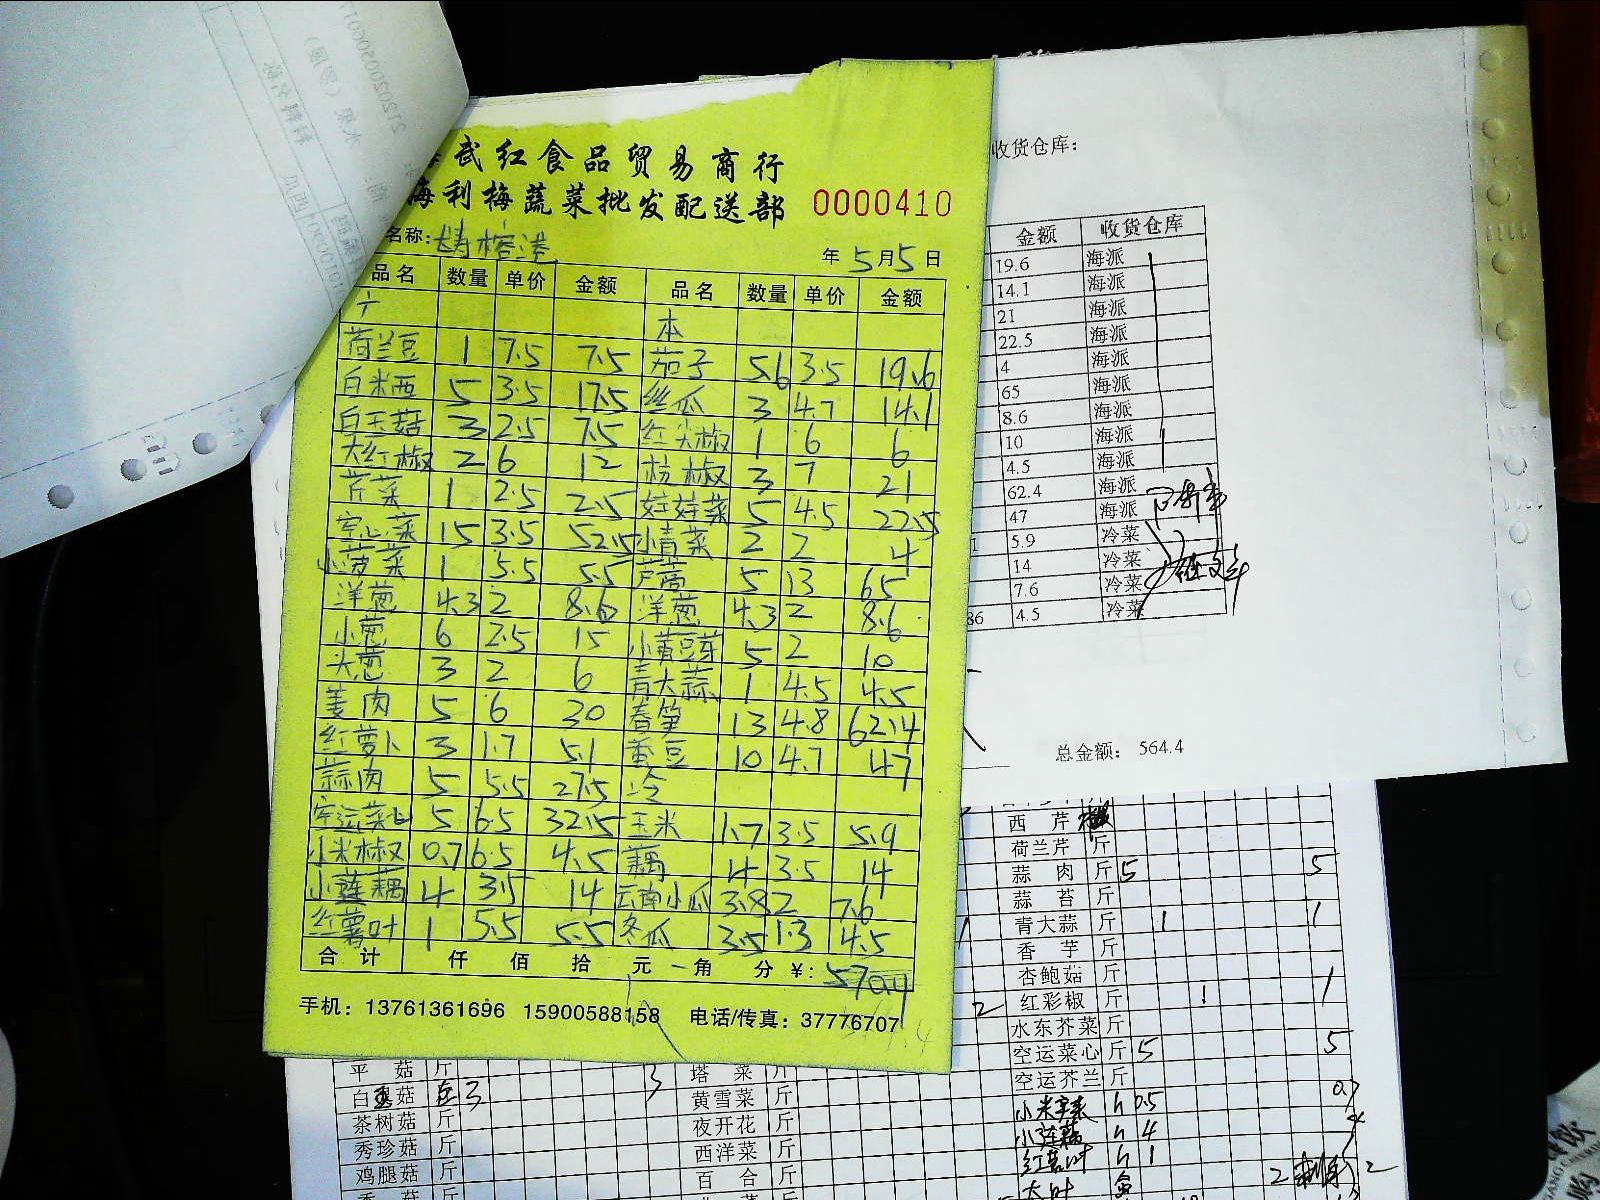 武红食品贸易商行
海利梅蔬菜批发配送部 0000410
名称:
年 5 月 5 日
品名 数量 单价 金额 品名 数量 单价 金额
本
荷兰豆 1 7.5 7.5 茄子 5.6 3.5 19.6
白米西 5 3.5 17.5 丝瓜 3 4.7 14.1
白玉菇 3 2.5 7.5 红尖椒 1 6 6
大红椒 2 6 12 杭椒 3 7 21
芹菜 1 2.5 2.5 娃娃菜 5 4.5 22.5
空心菜 15 3.5 52.5 小青菜 2 2 4
小菠菜 1 5.5 5.5 芦蒿 5 13 65
洋葱 4.3 2 8.6 洋葱 4.3 2 8.6
小葱 6 2.5 15 小黄豆芽 5 2 10
大葱 3 2 6 青大蒜 1 4.5 4.5
姜肉 5 6 30 春笋 13 4.8 62.4
红萝卜 3 1.7 5.1 蚕豆 10 4.7 47
蒜肉 5 5.5 27.5 冷
空运菜心 5 6.5 32.5 玉米 1.7 3.5 5.9
小米椒 0.7 6.5 4.5 藕 4 3.5 14
小莲藕 4 3.5 14 云南小瓜 3.8 2 7.6
红薯叶 1 5.5 5.5 冬瓜 3.5 1.3 4.5
合计 仟 佰 拾 元 角 分 ¥: 570.4
手机: 13761361696 15900588158 电话/传真: 37776707
收货仓库:
金额 收货仓库
19.6 海派
14.1 海派
21 海派
22.5 海派
4 海派
65 海派
8.6 海派
10 海派
4.5 海派
62.4 海派
47 海派
5.9 冷菜
14 冷菜
7.6 冷菜
86 4.5 冷菜
总金额: 564.4
西芹
荷兰芹 斤
蒜肉 斤 5 5
蒜苔 斤
青大蒜 斤 1 1
香芋 斤
杏鲍菇 斤 1
红彩椒 斤 1
水东芥菜 斤
空运菜心 斤 5 5
空运芥兰 斤
0.5 0.7
小莲藕 4
红薯叶 1
大叶
平菇 斤 3 塔菜 斤
白玉菇 3 黄雪菜 斤
茶树菇 斤 夜开花 斤
秀珍菇 斤 西洋菜 斤
鸡腿菇 斤 百合 斤